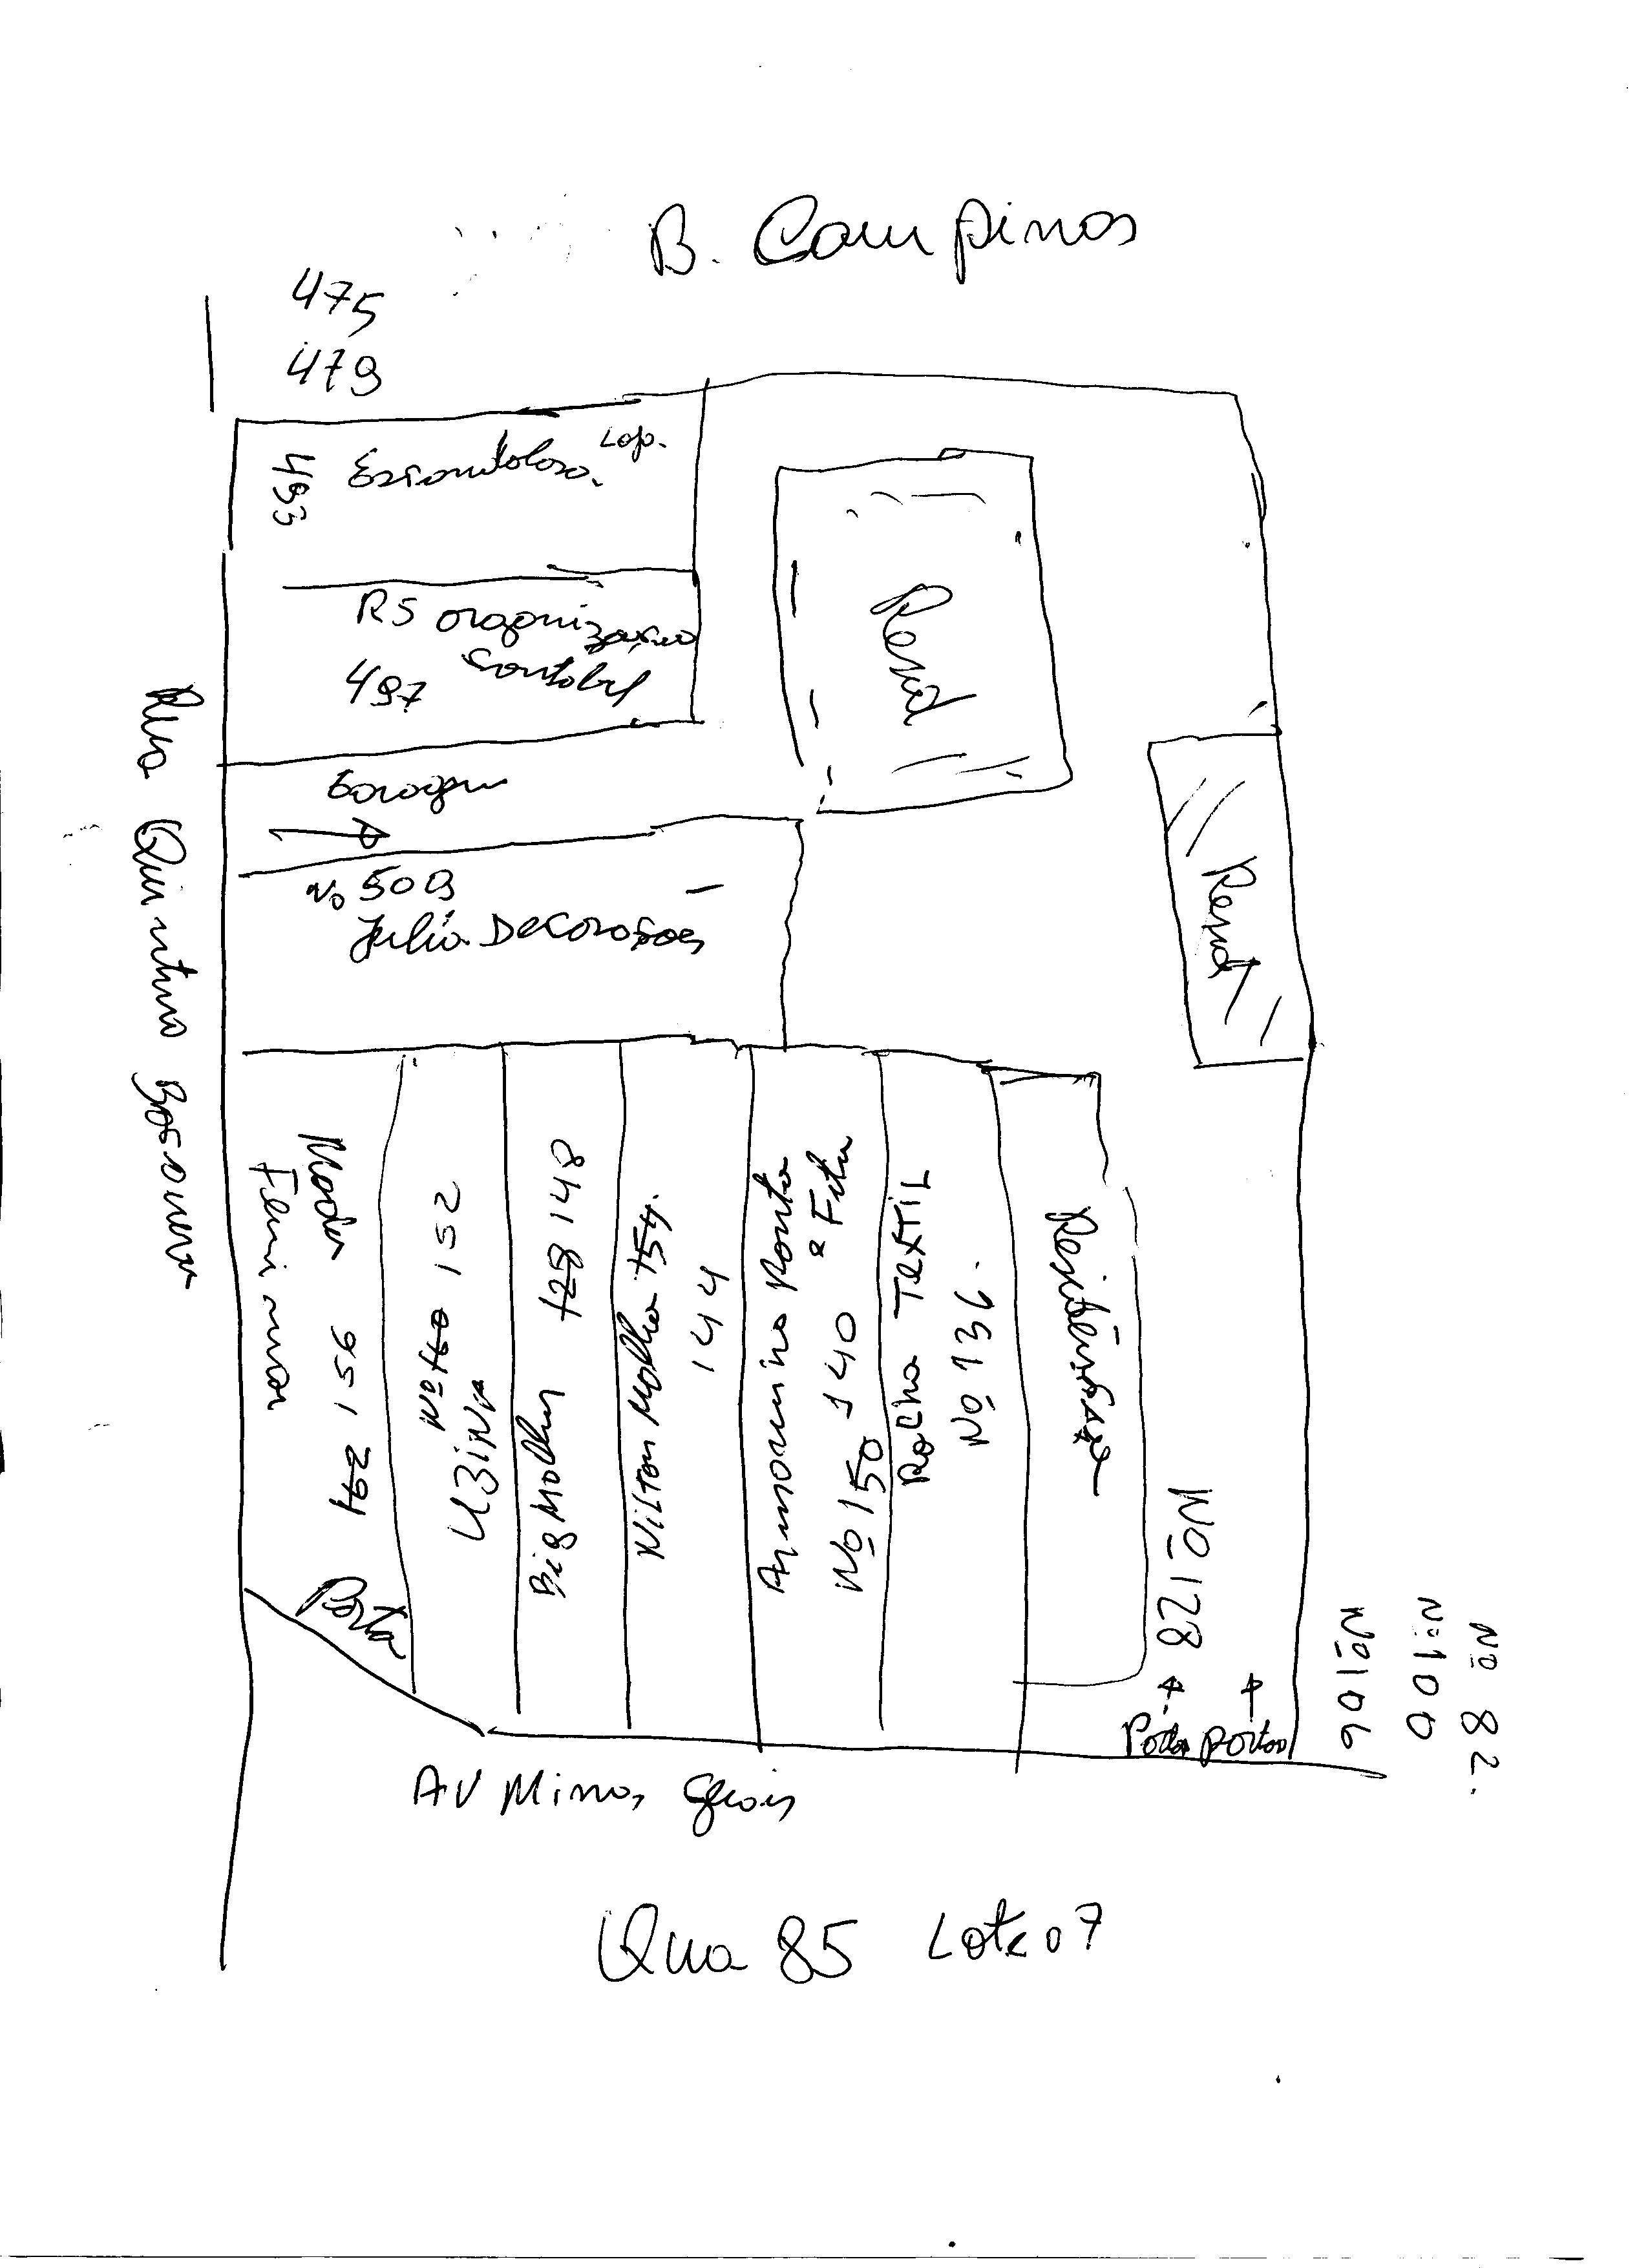 B. Campinas
475
479
493
Loja.
RS organização
contabil
497
Garagem
No 509
Julia Decorações
Resid
Resid
Rua Quintino Bocaiuva
Moda
Feminina
162 156
Porta
Nº 160 152
UZiNA
Big Malhas 128 148
Nilton Malha 154.
144
Armarinho Ponto
e Fita
Nº 150 140
Rocha TEXTiL
Nº 136.
Residência
Nº 128
Porta portão
Nº 106
Nº 100
Nº 82.
AV Minas Gerais
Qua 85 Lote 07